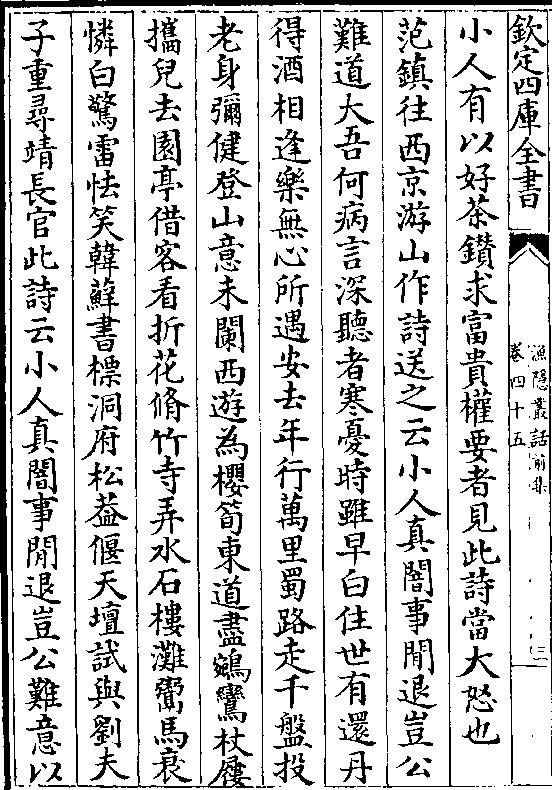 欽定四庫全書
漁隱叢話前集
卷四十五
三
小人有以好茶鑚求富貴權要者見此詩當大怒也
范鎮往西京游山作詩送之云小人真闇事閒退豈公
難道大吾何病言深聽者寒憂時雖早白住世有還丹
得酒相逢樂無心所遇安去年行萬里蜀路走千盤投
老身彌健登山意未闌西遊為櫻筍東道盡鵷鸞杖屨
攜兒去園亭借客看折花脩竹寺弄水石樓灘鬻馬哀
憐白驚雷怯笑韓蘚書標洞府松葢偃天壇試與劉夫
子重尋靖長官此詩云小人真闇事閒退豈公難意以